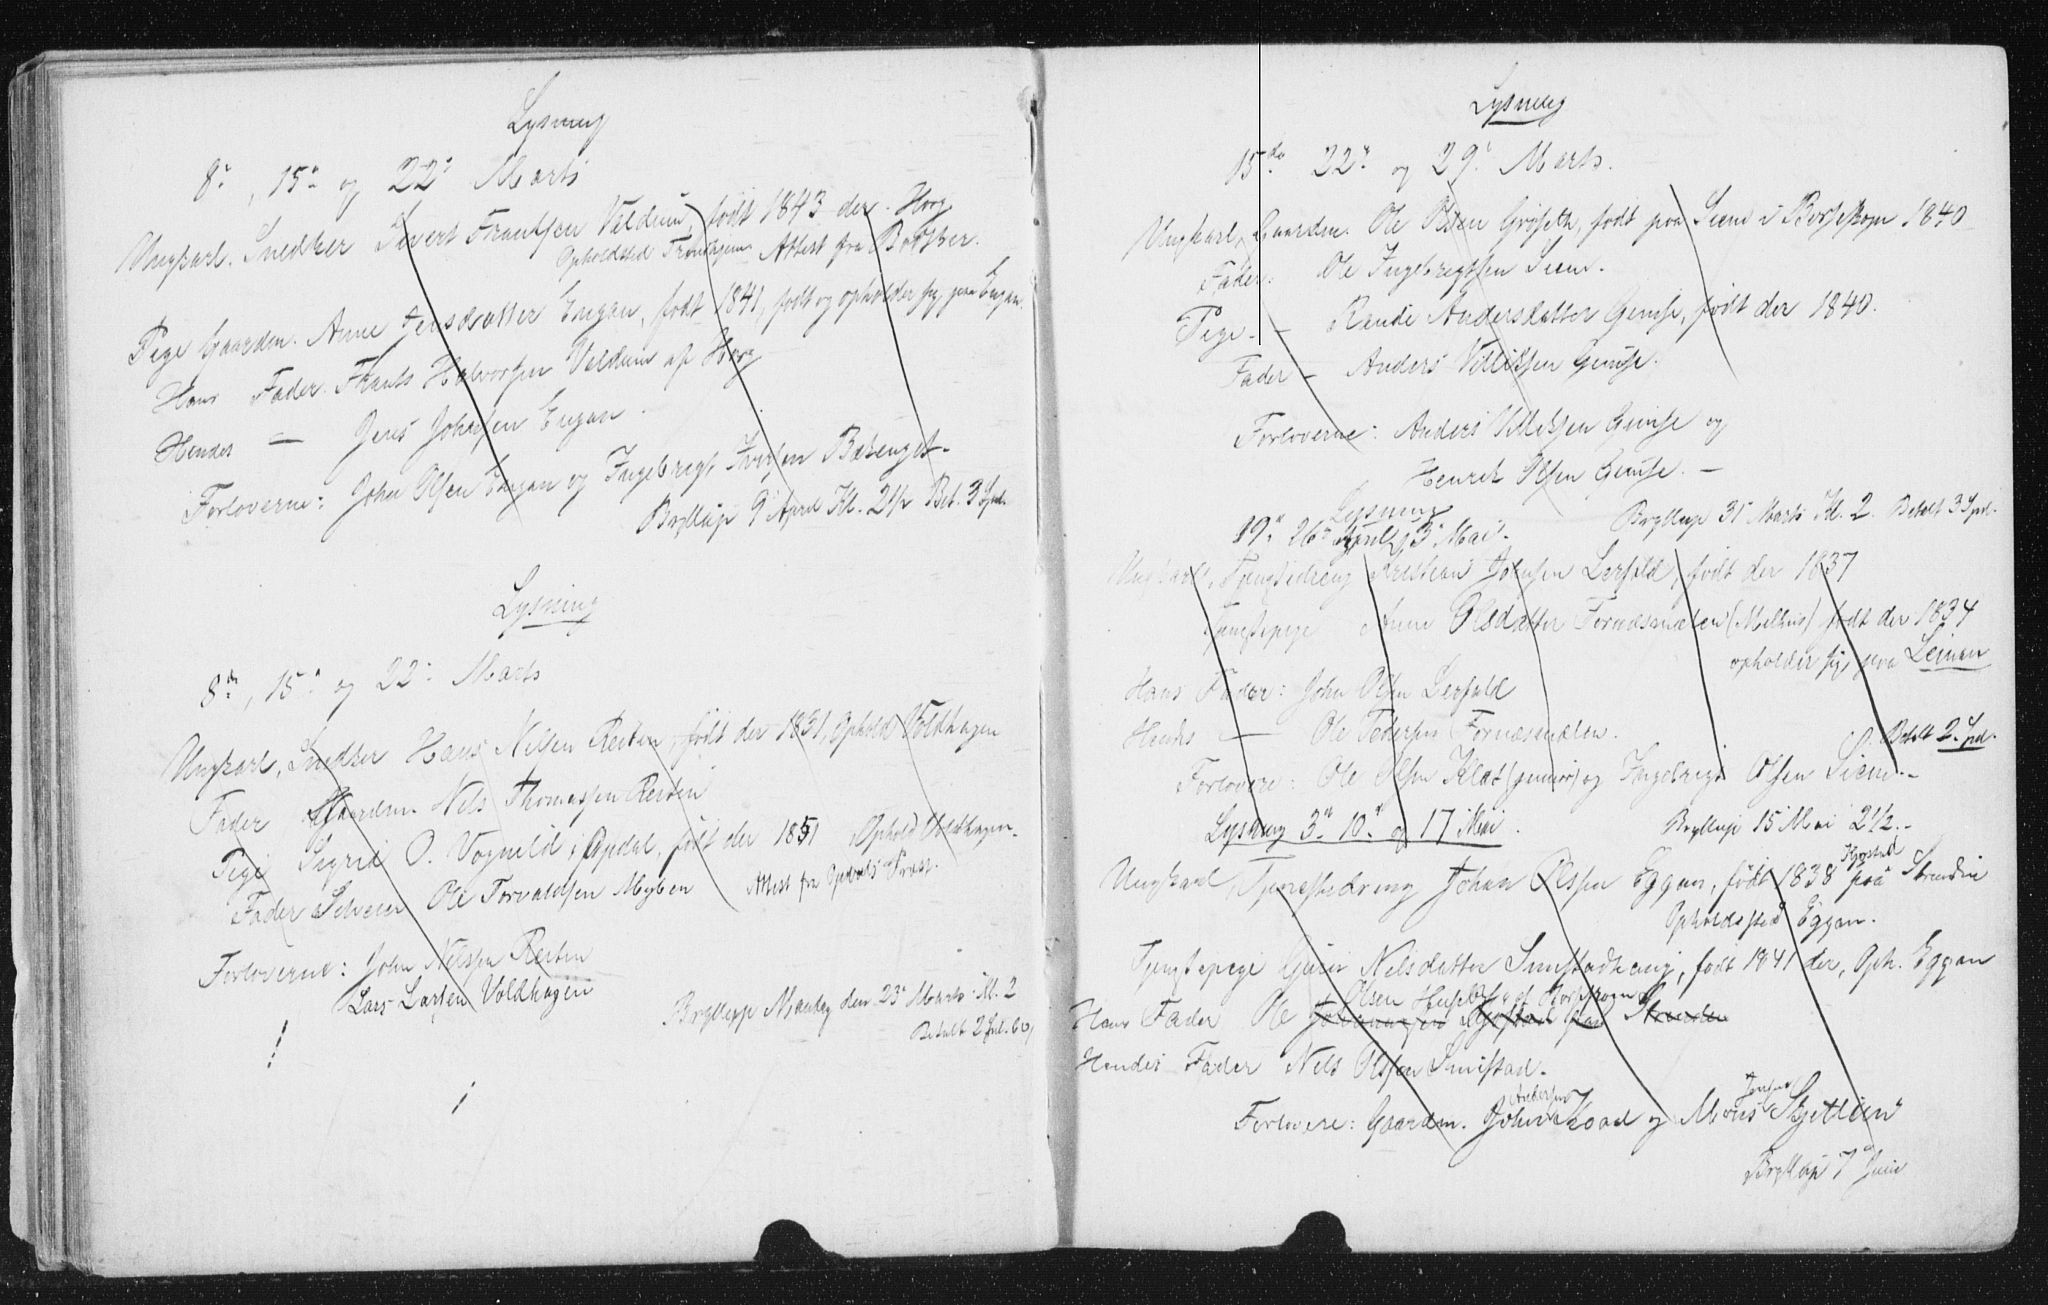 Lysning
8de, 15de og 22de Marts
Ungkarl. Snedker Sivert Frantsen Veldum, født 1843 der. Horg
Opholdsted Trondhjem Attest fra
Pige Gaardm. Anne Jensdatter Engan, født 1841, født og opholder sig paa Engan.
Hans Fader. Frants Halvorsen Veldum af Horg
Hendes — Jens Johnsen Engan.
Forloverne: John Olsen Engan og Ingebrigt Iversen
Bryllup 9de April Kl. 2 1/2 Bet. 3 Spd.
Lysning
8de, 15de og 22de Marts
Ungkarl, Snedker Hans Nilsen Reiten, født der 1831, Ophold Voldhagen
Fader Gaardm. Nils Thomassen Reiten
Pige Sigrid O. Vognild i Opdal, født der 1851 Ophold Voldhagen.
Fader Ole Torvaldsen Attest fra Opdals Præst.
Forloverne: John Nilsen Reiten
Lars Larsen Voldhagen
Bryllup Mandag den 23de Marts Kl. 2
Betalt 2 Spd. 60
Lysning
15de 22de og 29de Marts.
Ungkarl, Gaardm. Ole Olsen Grøseth, født paa Siem i Børseskogn 1840
Fader: Ole Ingebrigtsen Siem.
Pige — Randi Andersdatter Gimse, født der 1840.
Fader — Anders Villiksen Gimse.
Forloverne: Anders Villiksen Gimse og
Henrik Olsen Gimse. —
Bryllup 31de Marts Kl. 2. Betalt 3 Spd.
Lysning
19de 26de April, 3de Mai.
Ungkarl, Tjenestedreng Kristian Johnsen Lerfald, født der 1837
Tjenestepige Anne Olsdatter Fornæsmælen (Melhus) født der 1834
opholder sig paa Leinen
Hans Fader: John Olsen Lerfald
Hendes — Ole Pedersen Fornæsmælen.
Betalt 2 Spd.
Forlovere: Ole Olsen Klæt (junior) og Ingebrigt Olsen Siem.
Bryllup 15 Mai 2 1/2.
Lysning 3de 10de og 17 Mai.
Ungkarl, Tjenestedreng Johan Olsen Eggan, født 1838 paa Strinden
Opholdssted Eggan.
Tjenestepige Guru Nilsdatter, født 1841 der, Oph. Eggan
Olsen af Børseskogn
Hans Fader Ole Strinden
Hendes Fader Nils Olsen Smistad.
Forlovere: Gaardm. John Andersen og Mons Jensen Skjetlein
Bryllup 7de Juni